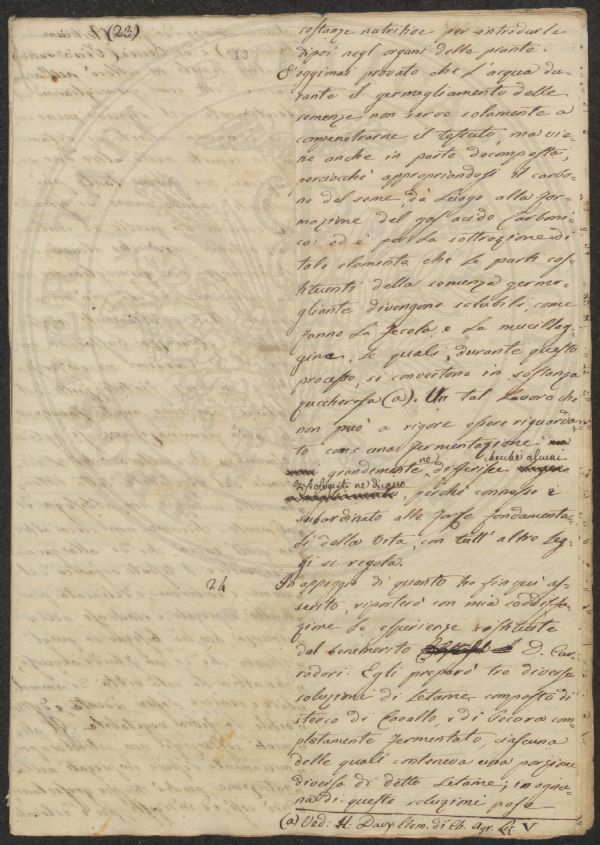 (22)
13
sostanze nutritive per introdurle
dipoi negl organi della pianta.
E' oggimai provato che l'acqua du-
rante il germogliamento delle
semenze non serve solamente a
compenetrarne il tessuto, ma vie-
ne anche in parte decomposta,
perciocchè appropriandosi il carbo-
no del seme, dà luogo alla for-
mazione del gas acido carboni-
co: ed è per la sottrazione di
tale elemento che le parti cos-
tituenti della semenza germo-
gliante divengono solubili, come
fanno la fecola, e la mucillag-
gine, le quali, durante questo
processo, si convertono in sostanza
zuccherosa (a). Un tal lavoro che
non può a rigore essere riguarda-
to come una fermentazione
grandemente ne differisce benché alcuni
Fisiologisti ne dicano
perché connesso e
subordinato alle forze fondamenta-
li della vita, con tutt' altre leg-
gi si regola.
24
In appoggio di quanto ho finquì as-
serito, riporterò con mia soddisfa-
zione le esperienze
dal benemerito D. Car-
radori. Egli preparò tre diverse
soluzioni di Letame composto di
sterco di Cavallo, e di Pecora com-
pletamente fermentato, ciascuna
delle quali conteneva una porzione
diversa di detto Letame; in ognu-
na di queste soluzioni pose
(a) Ved: H: Davy Elem. di Ch. Agr. V